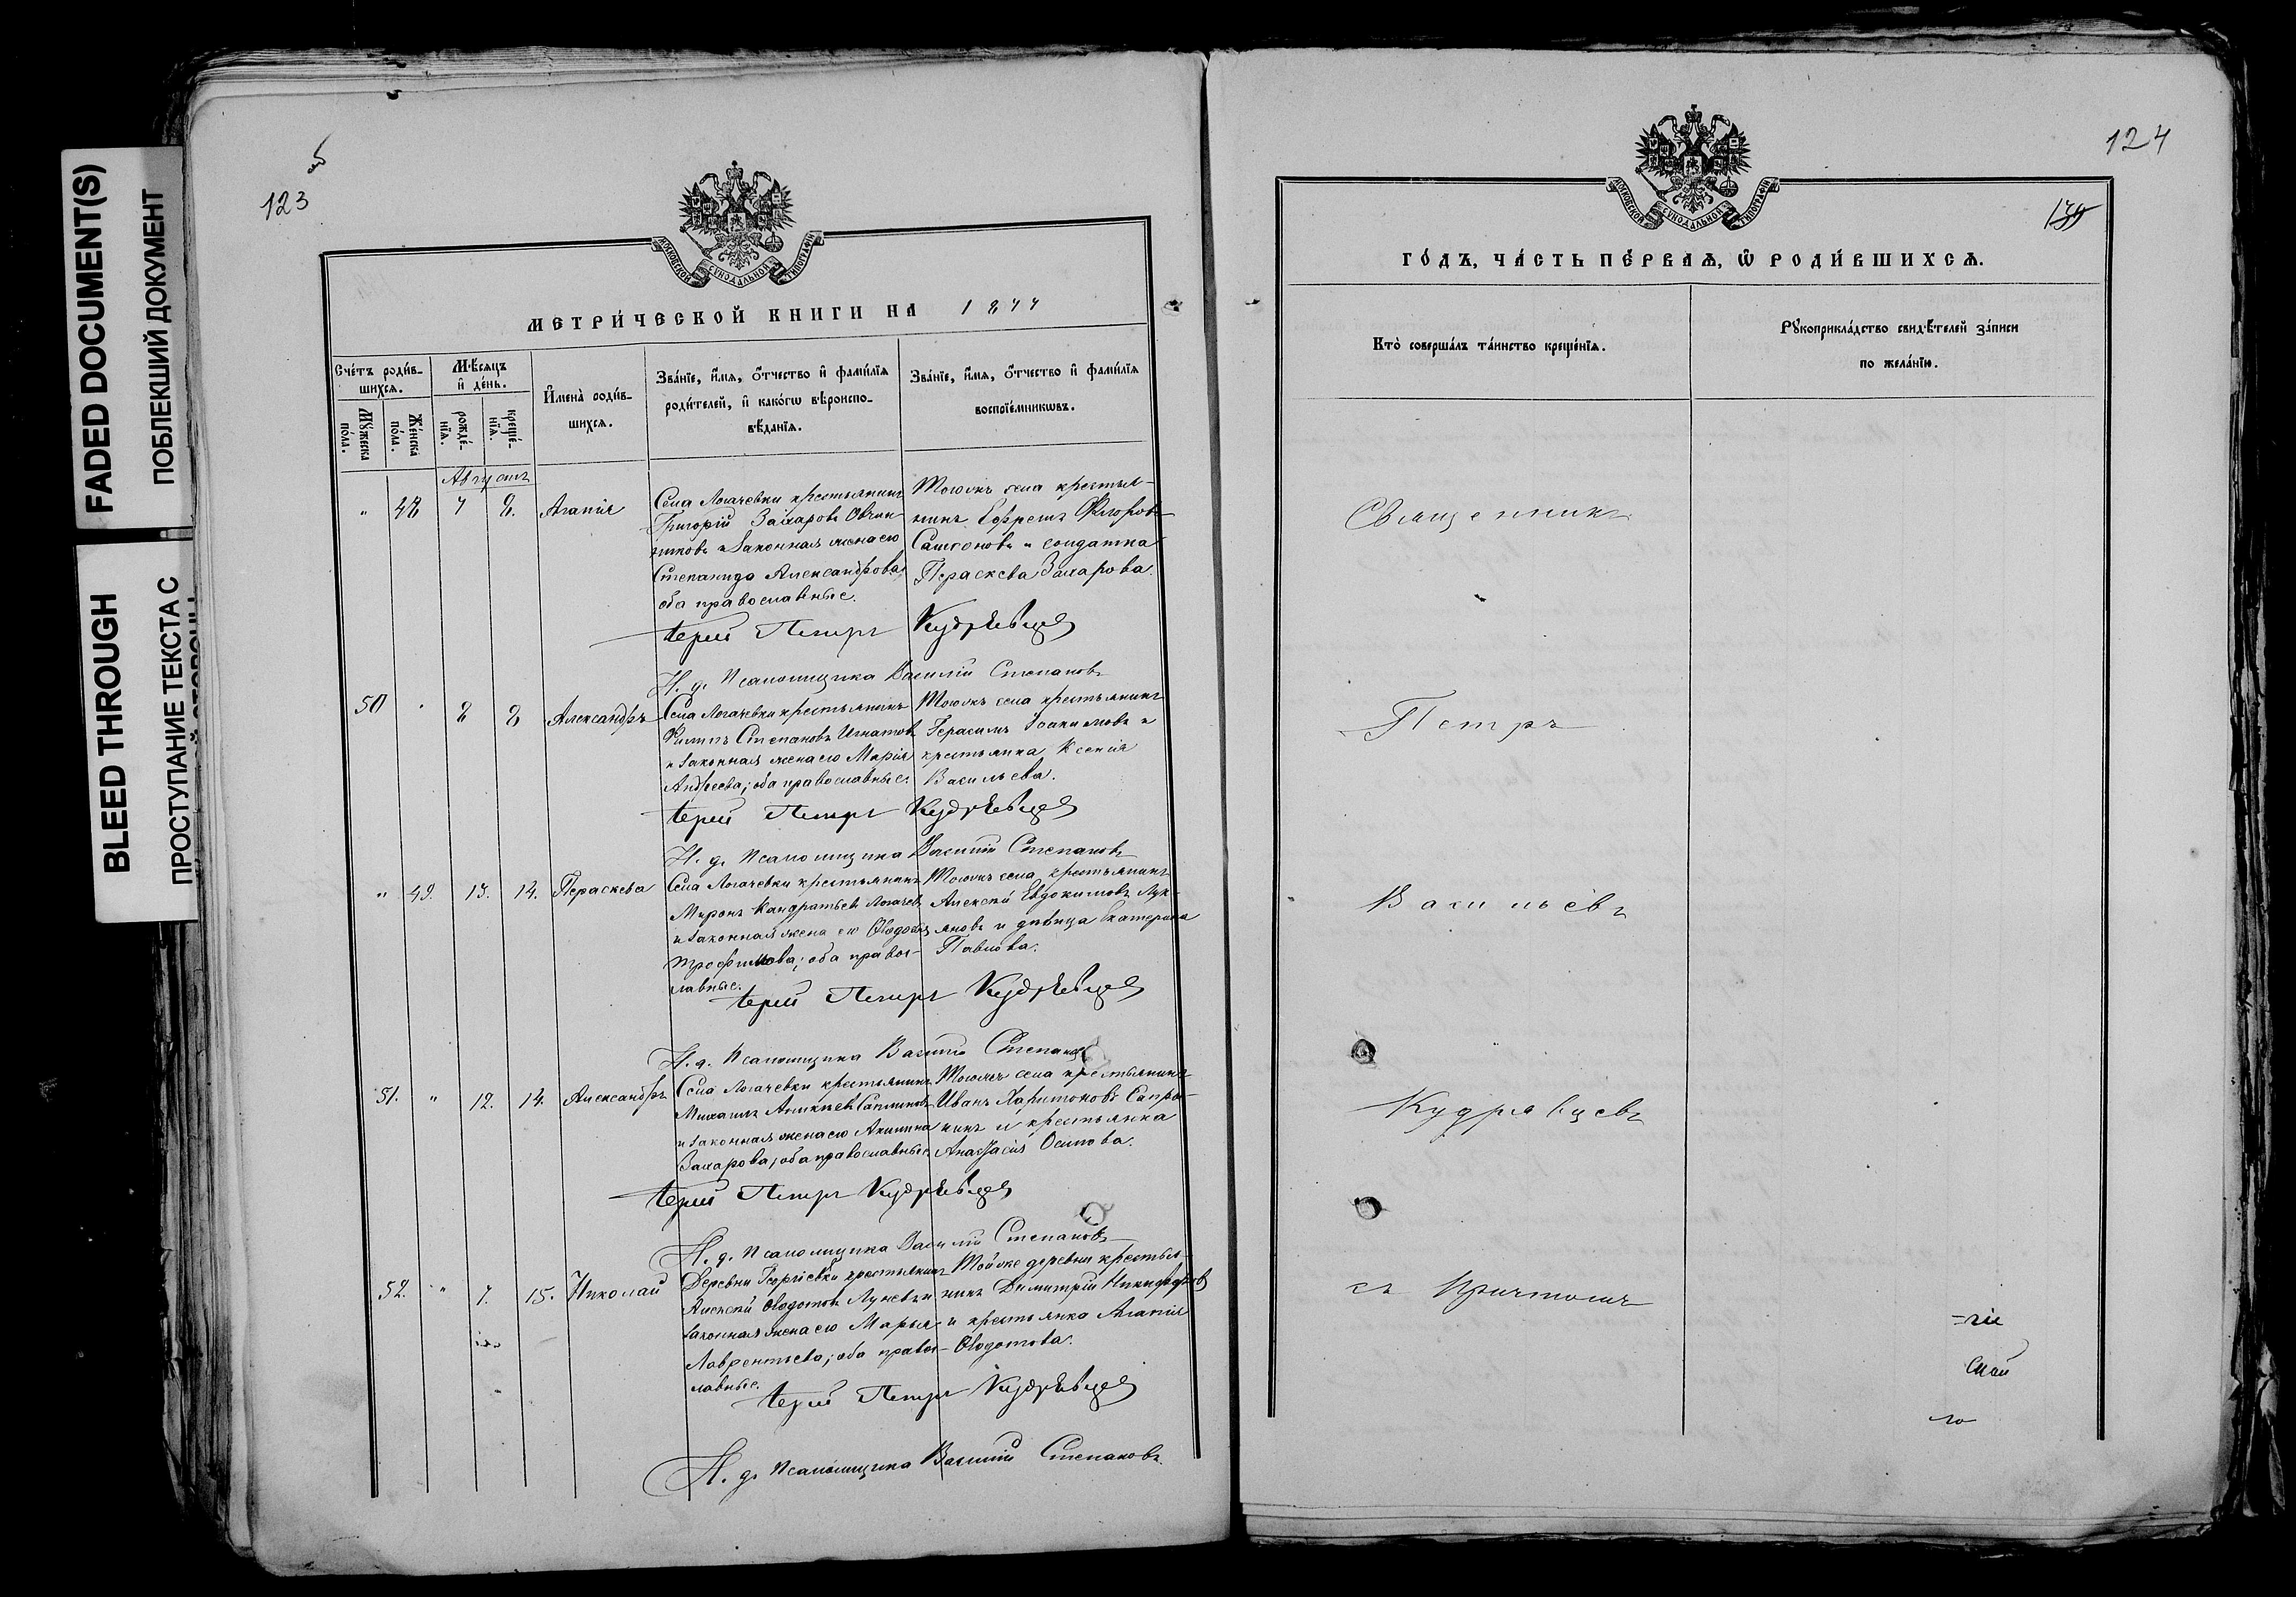 FADED DOCUMENT(S)
ПОБЛЕКШИЙ ДОКУМЕНТ
BLEED THROUGH
ПРОСТУПАНИЕ ТЕКСТА С
123
МОСКОВСКОЙ СѴНОДАЛЬНОЙ ТИПОГРАФІИ
МЕТРИ́ЧЕСКОЙ КНИГИ НА 1877
Сче́тъ роди́в-
шихсѧ.
Мѣ́сяцъ
и҆ де́нь.
И҆мена̀ роди́в-
шихсѧ.
Зва́нїе, и҆́мѧ, ѻ҆́тчество и҆ фами́лїѧ
роди́телей, и҆ како́гѡ вѣроиспо-
вѣ́данїѧ.
Зва́нїе, и҆́мѧ, ѻ҆́тчество и҆ фами́лїѧ
воспрїе́мникѡвъ.
Мꙋ́жеска
по́ла.
Же́нска
по́ла.
рожде́-
нїѧ.
креще́-
нїѧ.
Августъ
" 48 7 8. Агапія
Села Логачевки крестьянинъ
Григорій Захаровъ Овчин-
никовъ и законная жена его
Степанида Александрова,
оба православные.
Тогожъ села крестья-
нинъ Ефремъ Флоровъ
Самсоновъ и солдатка
Параскева Захарова.
Іерей Петръ Кудрявцевъ
И. д. Псаломщика Василій Степановъ
50 " 8 8 Александръ
Села Логачевки крестьянинъ
Филипъ Степановъ Игнатовъ
и законная жена его Марія
Андреева; оба православные.
Тогожъ села крестьянинъ
Герасимъ Іоакимовъ и
крестьянка Ксенія
Васильева.
Іерей Петръ Кудрявцевъ
И. д. Псаломщика Василій Степановъ
" 49. 13. 14. Параскева
Села Логачевки крестьянинъ
Миронъ Кандратьевъ Логачевъ
и законная жена его Ѳеодосія
Трофимова; оба правос-
лавные.
Тогожъ села крестьянинъ
Алексѣй Евдокимовъ Лук-
яновъ и дѣвица Екатерина
Павлова.
Іерей Петръ Кудрявцевъ
И. д. Псаломщика Василій Степановъ
51. " 12. 14. Александръ
Села Логачевки крестьянинъ
Михаилъ Аникіевъ
и законная жена его Акилина
Захарова; оба православные.
Тогожъ села крестьянинъ
Иванъ Харитоновъ Сапро-
нинъ и крестьянка
Анастасія Осипова.
Іерей Петръ Кудрявцевъ
И. д. Псаломщика Василій Степановъ
52. " 7. 15. Николай
Деревни Георгіевки крестьянинъ
Алексѣй Ѳедотовъ Луневъ и
законная жена его Марья
Лаврентьева; оба правос-
лавные.
Той же деревни крестья-
нинъ Димитрій Никифоровъ
и крестьянка Агапія
Ѳедотова.
Іерей Петръ Кудрявцевъ
И. д. Псаломщика Василій Степановъ.
124
139
МОСКОВСКОЙ СѴНОДАЛЬНОЙ ТИПОГРАФІИ
ГО́ДЪ, ЧА́СТЬ ПЕ́РВАѦ, Ѡ҆ РОДИ́ВШИХСѦ.
Кто̀ соверша́лъ та́инство креще́нїѧ.
Рꙋкоприкла́дство свидѣ́телей за́писи
по жела́нїю.
Священникъ
Петръ
Васильевъ
Кудрявцевъ
съ причтомъ